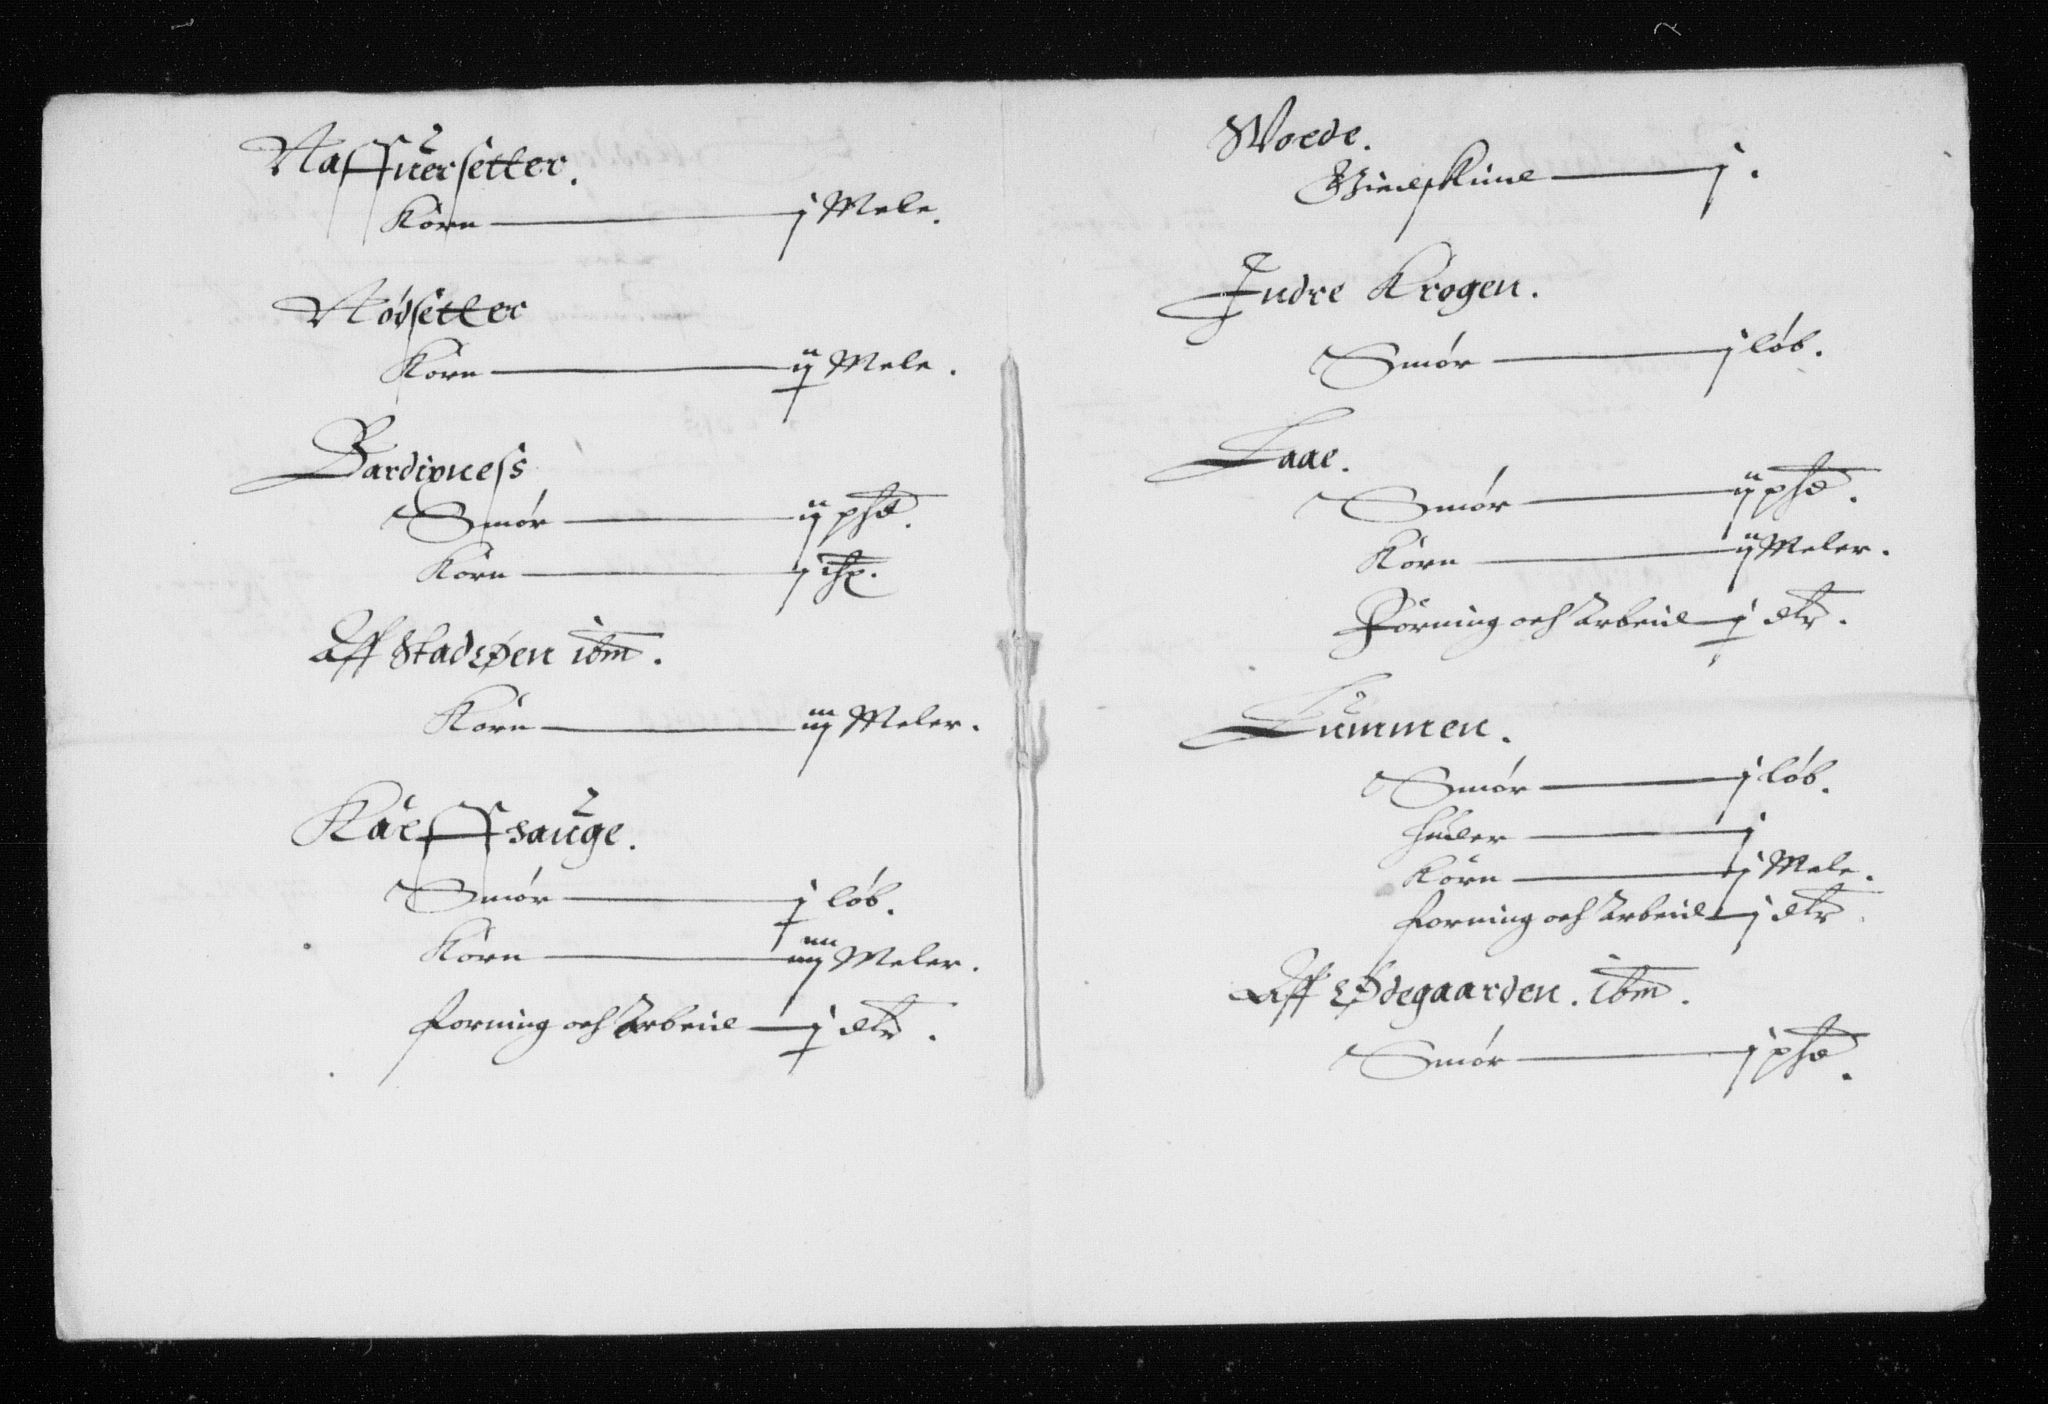 Naffuersetter.
Korn — j Mele.
Nødsetter
Korn — ij Mele.
Bardixness
Smør — ij pund
Korn — j thr.
Aff Stadzøen ibm.
Korn — iij Meler.
Kalffsauge.
Smør — j løb.
Korn — iiij Meler.
forning och Arbeid — j dlr.
Woede.
Bierskind — j.
Indre Krogen.
Smør — j løb.
Laae.
Smør — ij pund.
Korn — ij Meler.
Forning och Arbeid — j dlr.
Lummen.
Smør — j løb.
Huder — j
Korn — j Mele.
forning och Arbeid — j dlr
Aff Ødegaarden. ibm.
Smør — j pund.